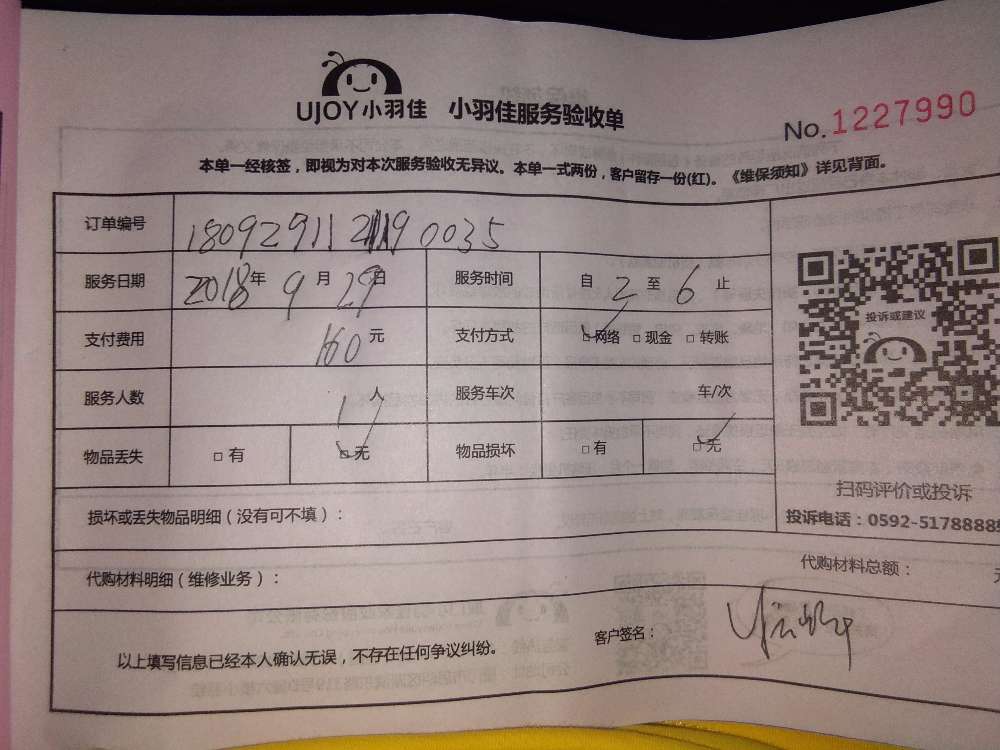 UJOY小羽佳 小羽佳服务验收单
No.1227990
本单一经核签，即视为对本次服务验收无异议。本单一式两份，客户留存一份(红)。《维保须知》详见背面。
订单编号 1809291121190035
服务日期 2018年9月29日 服务时间 自2至6止
支付费用 160元 支付方式 ☑网络 □现金 □转账
服务人数 1人 服务车次 车/次
物品丢失 □有 ☑无 物品损坏 □有 ☑无
投诉或建议
扫码评价或投诉
投诉电话：0592-5178888
损坏或丢失物品明细（没有可不填）：
代购材料明细（维修业务）： 代购材料总额：
以上填写信息已经本人确认无误，不存在任何争议纠纷。 客户签名：